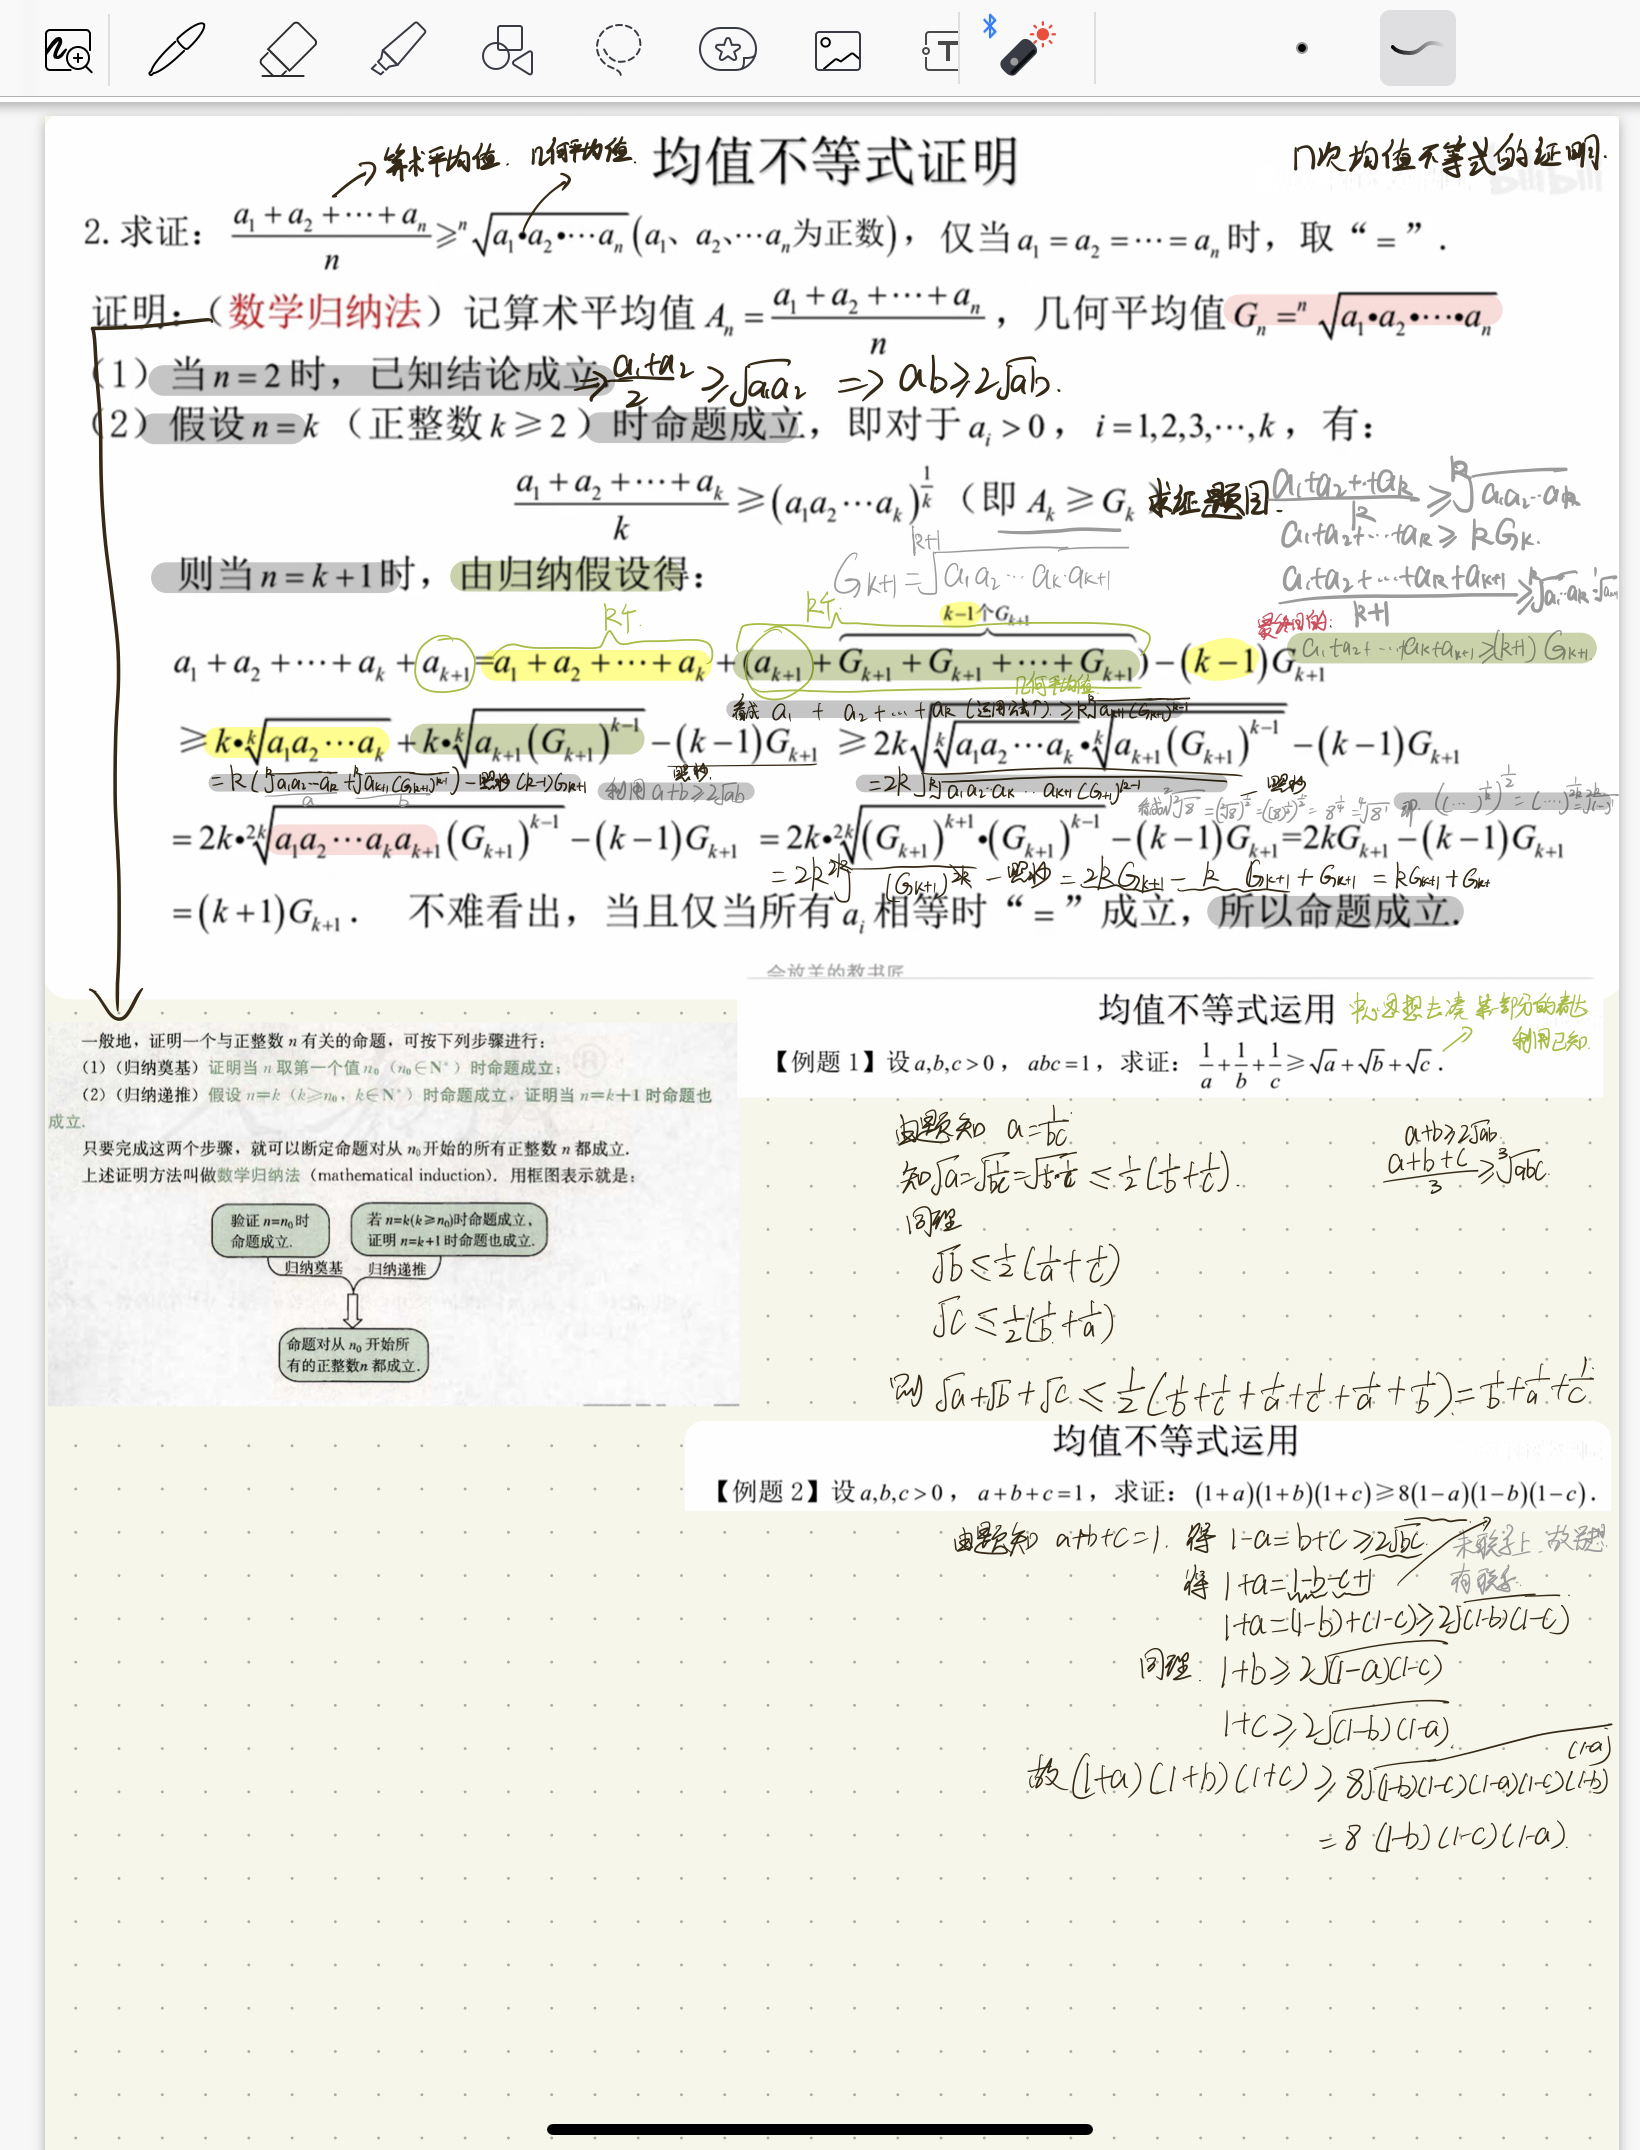 算术平均值. 几何平均值. 均值不等式证明 n次均值不等式的证明.
2.求证：(a₁+a₂+⋯+aₙ)/n ≥ ⁿ√(a₁•a₂•⋯aₙ) (a₁、a₂、⋯aₙ为正数)，仅当a₁=a₂=⋯=aₙ时，取“=”.
证明：（数学归纳法）记算术平均值Aₙ=(a₁+a₂+⋯+aₙ)/n，几何平均值Gₙ=ⁿ√(a₁•a₂•⋯•aₙ)
（1）当n=2时，已知结论成立 ⇒ (a₁+a₂)/2 ≥ √(a₁a₂) ⇒ ab≥2√ab.
（2）假设n=k（正整数k≥2）时命题成立，即对于aᵢ>0，i=1,2,3,⋯,k，有：
(a₁+a₂+⋯+aₖ)/k ≥ (a₁a₂⋯aₖ)^(1/k)（即Aₖ≥Gₖ 求证题目. (a₁+a₂+⋯+aₖ)/k ≥ ᵏ√(a₁a₂⋯aₖ)
a₁+a₂+⋯+aₖ ≥ kGₖ.
则当n=k+1时，由归纳假设得： Gₖ₊₁=ᵏ⁺¹√(a₁a₂⋯aₖ·aₖ₊₁)
k个 k个 k−1个Gₖ₊₁ 最终目的:
a₁+a₂+⋯+aₖ+aₖ₊₁=a₁+a₂+⋯+aₖ+(aₖ₊₁+Gₖ₊₁+Gₖ₊₁+⋯+Gₖ₊₁)−(k−1)Gₖ₊₁ a₁+a₂+⋯+aₖ+aₖ₊₁≥(k+1)Gₖ₊₁
几何平均值.
看成 a₁ + a₂+⋯+aₖ ≥ k ᵏ√(aₖ₊₁(Gₖ₊₁)^(k−1))
≥k•ᵏ√(a₁a₂⋯aₖ)+k•ᵏ√(aₖ₊₁(Gₖ₊₁)^(k−1))−(k−1)Gₖ₊₁ ≥2k√(ᵏ√(a₁a₂⋯aₖ)•ᵏ√(aₖ₊₁(Gₖ₊₁)^(k−1)))−(k−1)Gₖ₊₁
=k(ᵏ√(a₁a₂⋯aₖ)+ᵏ√(aₖ₊₁(Gₖ₊₁)^(k−1)))−照抄(k−1)Gₖ₊₁ 照抄. 利用a+b≥2√ab =2k√(ᵏ√(a₁a₂⋯aₖ⋯aₖ₊₁(Gₖ₊₁)^(k−1))) 照抄
=2k•²ᵏ√(a₁a₂⋯aₖaₖ₊₁(Gₖ₊₁)^(k−1))−(k−1)Gₖ₊₁ =2k•²ᵏ√((Gₖ₊₁)^(k+1)•(Gₖ₊₁)^(k−1))−(k−1)Gₖ₊₁=2kGₖ₊₁−(k−1)Gₖ₊₁
=2k ²ᵏ√((Gₖ₊₁)^(2k))−照抄=2kGₖ₊₁−k Gₖ₊₁+Gₖ₊₁=kGₖ₊₁+Gₖ₊₁
=(k+1)Gₖ₊₁. 不难看出，当且仅当所有aᵢ相等时“=”成立，所以命题成立.
会放羊的教书匠
一般地，证明一个与正整数n有关的命题，可按下列步骤进行：
(1)(归纳奠基) 证明当n取第一个值n₀ (n₀∈N*) 时命题成立；
(2)(归纳递推) 假设n=k (k≥n₀, k∈N*) 时命题成立，证明当n=k+1时命题也
成立.
只要完成这两个步骤，就可以断定命题对从n₀开始的所有正整数n都成立.
上述证明方法叫做数学归纳法 (mathematical induction). 用框图表示就是：
验证n=n₀时
命题成立.
若n=k(k≥n₀)时命题成立，
证明n=k+1时命题也成立.
归纳奠基 归纳递推
命题对从n₀开始所
有的正整数n都成立.
均值不等式运用 中心思想去凑某部分的表达
利用已知.
【例题1】设a,b,c>0，abc=1，求证：1/a+1/b+1/c≥√a+√b+√c.
由题知 a=1/bc.
知√a=√(1/bc)=√(1/b·1/c)≤½(1/b+1/c).
同理
√b≤½(1/a+1/c)
√c≤½(1/b+1/a)
则√a+√b+√c≤½(1/b+1/c+1/a+1/c+1/a+1/b)=1/b+1/a+1/c.
a+b≥2√ab.
(a+b+c)/3≥³√abc.
均值不等式运用
【例题2】设a,b,c>0，a+b+c=1，求证：(1+a)(1+b)(1+c)≥8(1−a)(1−b)(1−c).
由题知 a+b+c=1. 得 1−a=b+c≥2√bc. 未联系上.
得 1+a=1−b−c+1 有联系.
1+a=(1−b)+(1−c)≥2√(1−b)(1−c)
同理. 1+b≥2√(1−a)(1−c)
1+c≥2√(1−b)(1−a).
故(1+a)(1+b)(1+c)≥8√(1−b)(1−c)(1−a)(1−c)(1−b)(1−a)
=8(1−b)(1−c)(1−a).